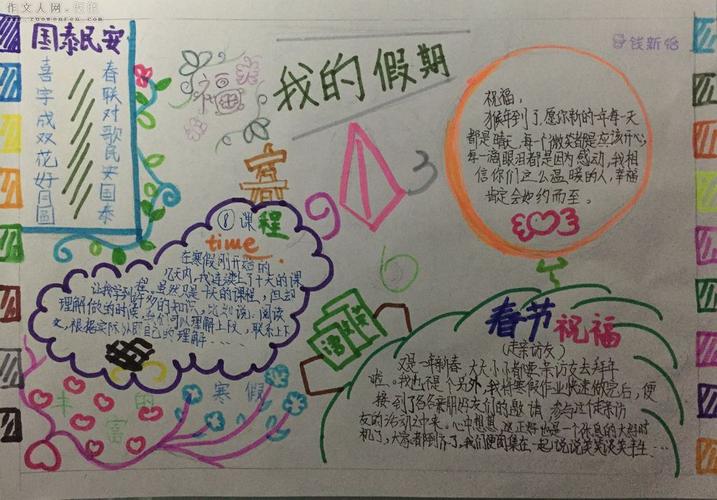 作文人网
国泰民安
喜字成双花好月圆
春联对歌民安国泰
福
我的假期
钱新怡
祝福:
猴年到了,愿你新的一年每一天
都是晴天,每一个微笑都是应该开心,
每一滴眼泪都是因为感动,我相
信你们这么温暖的人,幸福
肯定会如约而至。
富
3
9
6
⑧课程
time
在寒假刚开始的
几天内,我连续上了十天的课
程,虽然只是十天的课程,但却
让我学到许多的知识,比如说:阅读
理解做的时候,
可以理解上文,联系上下
文,根据实际
自己的理解……
丰富的寒假
春节祝福
(走亲访友)
又是一年新春,大大小小都要走亲访友去拜年
啦。我也不是个另外,我将寒假作业快速做完后,便
接到了各各亲朋好友们的邀请,参与这个走亲访
友的活动之中来。心中想想,这正好也是一个休息的大好时
机了,大家看到齐了,我们便团集在一起,说说笑笑没笑半生……